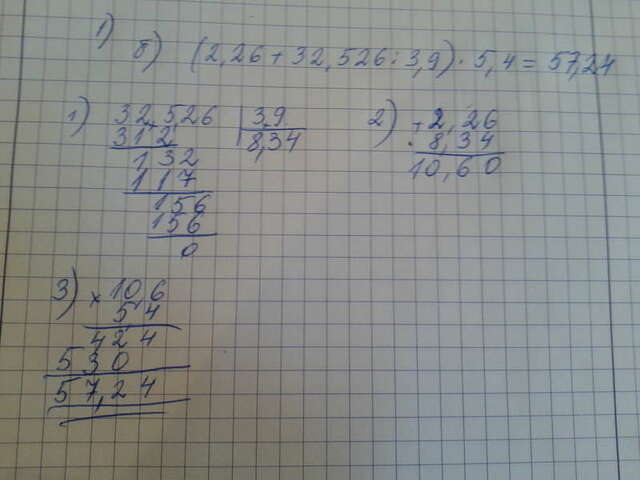 1)
б) (2,26 + 32,526 : 3,9) · 5,4 = 57,24
1) 32,526 | 3,9
312 8,34
132
117
156
156
0
2) + 2,26
8,34
10,60
3) × 10,6
5 4
424
530
57,24